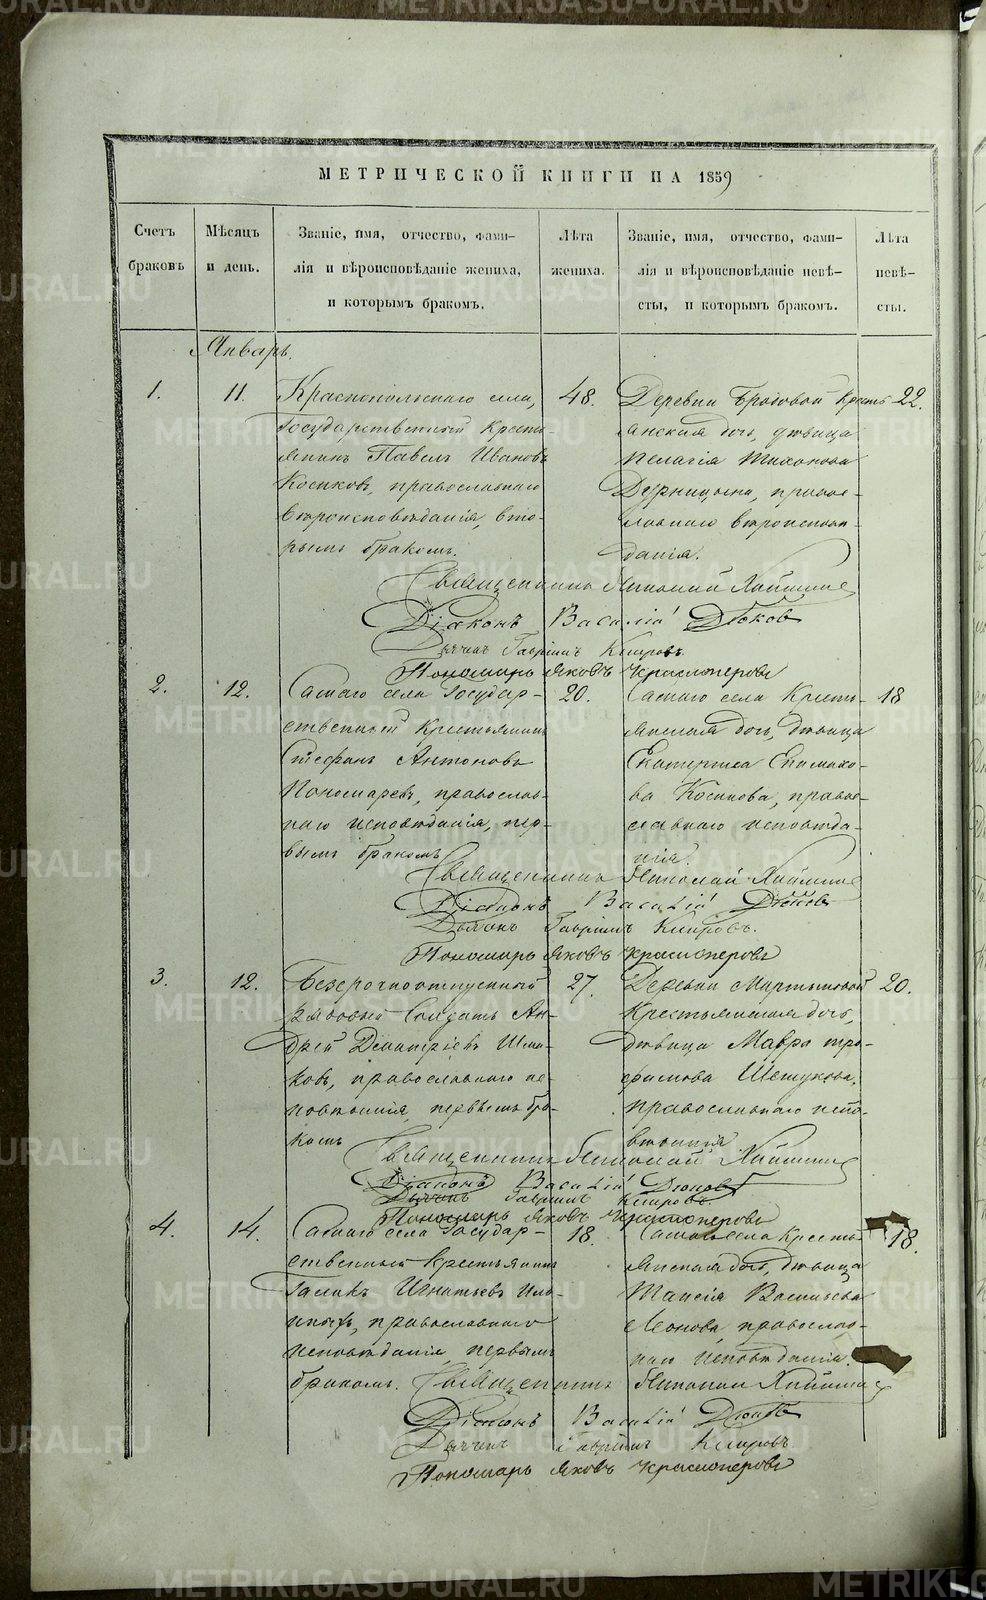 МЕТРИЧЕСКОЙ КНИГИ НА 1859
Счетъ браковъ
Мѣсяцъ и день.
Званіе, имя, отчество, фами-
лія и вѣроисповѣданіе жениха,
и которымъ бракомъ.
Лѣта жениха.
Званіе, имя, отчество, фами-
лія и вѣроисповѣданіе невѣ-
сты, и которымъ бракомъ.
Лѣта невѣ-
сты.
Январь.
1.
11.
Краснопольскаго села,
Государственный Кресть-
янинъ Павелъ Ивановъ
Косиковъ, православнаго
вѣроисповѣданія, вто-
рымъ бракомъ.
48.
Деревни Бродовой Кресть-
янская дочь, дѣвица
Пелагія Тихонова
православнаго вѣроисповѣ-
данія.
22.
Священникъ Николай
Діаконъ Василій Дюковъ
Дьячекъ Гавріилъ Кипровъ
Пономарь Яковъ Красноперовъ
2.
12.
Самаго села Государ-
ственный Крестьянинъ
Стефанъ Антоновъ
Пономаревъ, православ-
наго исповѣданія, пер-
вымъ бракомъ
20.
Самаго села Кресть-
янская дочь, дѣвица
Екатерина
Косикова, право-
славнаго исповѣда-
нія.
18
Священникъ Николай
Діаконъ Василій Дюковъ
Дьячекъ Гавріилъ Кипровъ.
Пономарь Яковъ Красноперовъ
3.
12.
Безсрочноотпускный
рядовой Солдатъ Ан-
дрей Димитріевъ
православнаго ис-
повѣданія, первымъ бра-
комъ
27.
Деревни Мартыновой
Крестьянская дочь,
дѣвица Мавра Тро-
фимова
православнаго испо-
вѣданія
20.
Священникъ Николай
Діаконъ Василій Дюковъ
Дьячекъ Гавріилъ Кипровъ.
Пономарь Яковъ Красноперовъ
4.
14.
Самаго села Государ-
ственный Крестьянинъ
Игнатьевъ
православнаго
исповѣданія, первымъ
бракомъ.
18.
Самаго села Кресть-
янская дочь, дѣвица
Таисія Васильева
Леонова, православ-
наго исповѣданія.
18.
Священникъ Николай
Діаконъ Василій Дюковъ
Дьячекъ Гавріилъ Кипровъ
Пономарь Яковъ Красноперовъ
METRIKI.GASO-URAL.RU